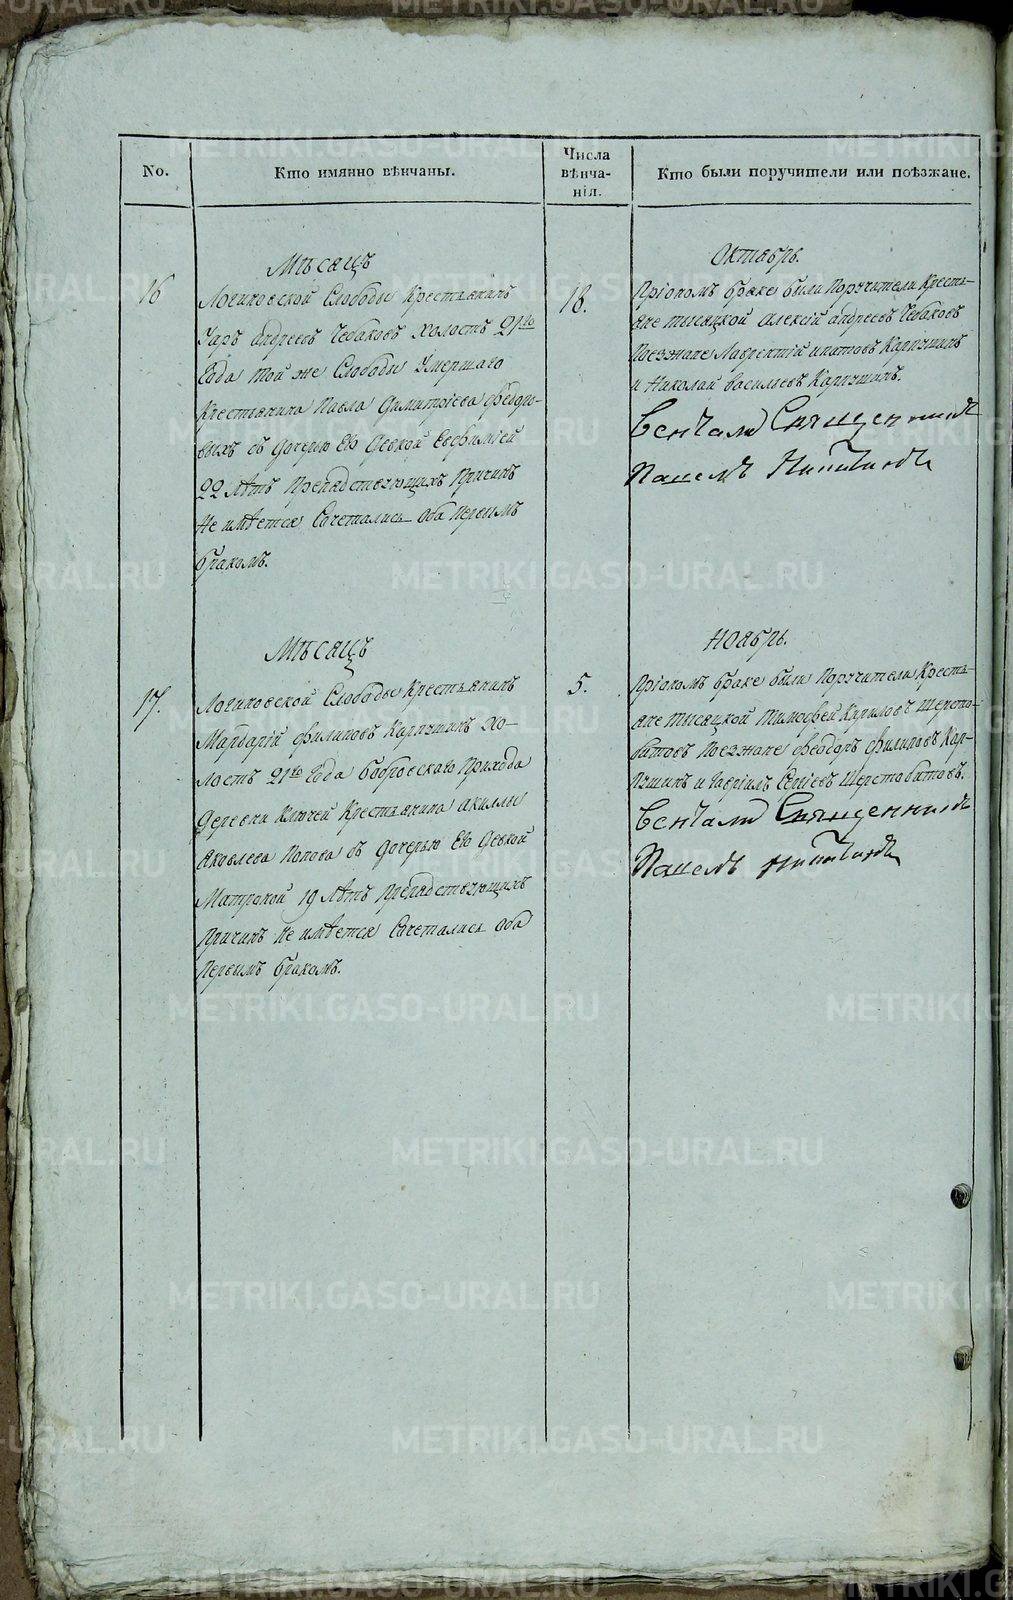 No.
Кто имянно вѣнчаны.
Числа
вѣнча-
нія.
Кто были поручители или поѣзжане.
Мѣсяцъ
Октябрь.
16
Логиновской Слободы Крестьянинъ
Уаръ Андреевъ Чебаковъ холостъ 21го
Года той же Слободы Умершаго
Крестьянина Павла Димитріева Федоро-
выхъ съ дочерью Ею девкой Евфиміей
22 лѣтъ Препядствующихъ Причинъ
Не имѣется Сочетались Оба Первымъ
бракомъ.
18.
Пріономъ браке были Поручители Кресть-
яне тысяцкой Алексій андреевъ Чебаковъ
Поезжане Лаврентій ипатовъ Карпушинъ
и Николай васильевъ Карпушинъ.
Венчали Священникъ
Павелъ
Мѣсяцъ
Ноябрь.
17.
Логиновской Слободы Крестьянинъ
Мардарій Филиповъ Карпушинъ Хо-
лостъ 21го Года Бобровскаго Прихода
Деревни Ключей Крестьянина Акиллы
Яковлева Попова съ дочерью Ею девкой
Матроной 19 лѣтъ Препядствующихъ
Причинъ Не имѣется Сочетались Оба
Первымъ бракомъ.
5.
Пріономъ браке были Поручители Кресть-
яне тысяцкой Тимофей Кириловъ Шерсто-
битовъ Поезжане Феодоръ Филиповъ Кар-
пушинъ и Гавріилъ Шерстобитовъ.
Венчали Священникъ
Павелъ
METRIKI.GASO-URAL.RU